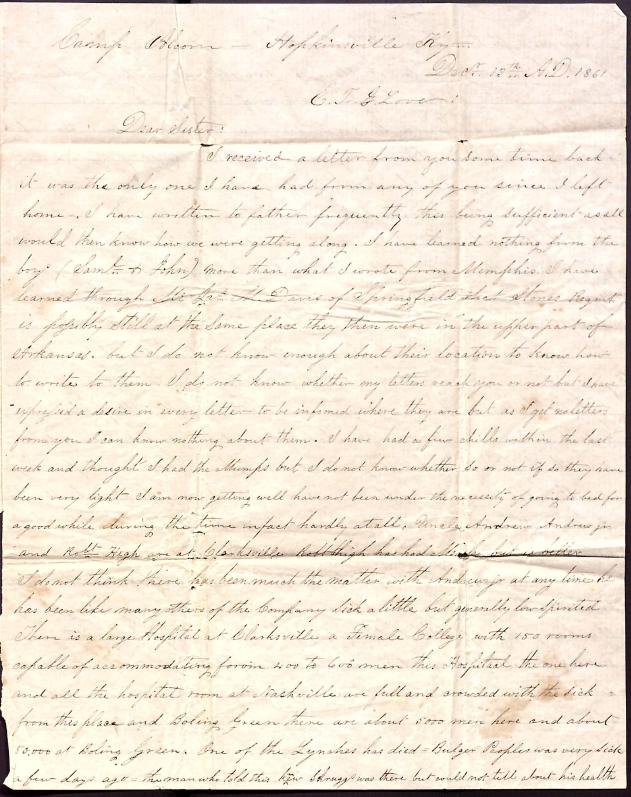 Camp Alcorn — Hopkinsville Ky —
Decr. 12th A.D. 1861
C. T. G. Love :
Dear Sister :
I received a letter from you some time back
it was the only one I have had from any of you since I left
home. I have written to father frequently this being sufficient as all
would then know how we were getting along. I have learned nothing from the
boys (Saml. & John) more than what I wrote from Memphis. I have
learned through Mr M. Davis of Springfield that Stones Regmt
is possibly still at the same place they then were in the upper part of
Arkansas. but I do not know enough about their location to know how
to write to them. I do not know whether my letters reach you or not but I have
expressed a desire in every letter to be infomed where they are but as I get no letters
from you I can know nothing about them. I have had a few chills within the last
week and thought I had the Mumps but I do not know whether so or not if so they have
been very light I am now getting well have not been under the necessity of going to bed for
a good while during the time infact hardly at all. Uncle Andrew Andrew jr
and Robt High are at Clarksville Robt High has had but is better
I do not think there has been much the matter with Andrew jr at any time he
has been like many others of the Company sick a little but generally low spirited
There is a large Hospital at Clarksville a Female College with 150 rooms
capable of accommodating forom 400 to 600 men this Hospitaal the one here
and all the hospital room at Nashville are full and crowded with the sick
from this place and Boling Green there are about 5000 men here and about
50,000 at Boling Green. One of the Lynches has died = Bulger Peoples was very sick
a few days ago = the man who told this was there but could not tell about his health